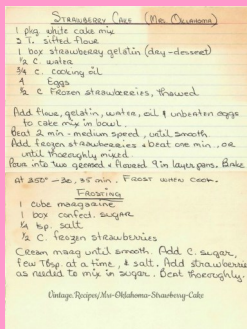 STRAWBERRY CAKE (MRS. OKLAHOMA)
1 pkg. white cake mix
3 T. sifted flour
1 box strawberry gelatin (dry-dessert)
1/2 C. water
3/4 C. cooking oil
4 Eggs
1/2 C frozen strawberries, thawed
Add flour, gelatin, water, oil & unbeaten eggs
to cake mix in bowl.
Beat 2 min - medium speed, until smooth
Add frozen strawberries & beat one min. or
until thoroughly mixed.
Pour into two greased & floured 9 in layer pans. Bake
AT 350° - 30, 35 min. FROST WHEN COOL.
FROSTING
1 cube margarine
1 box confect. sugar
1/4 tsp. salt
1/2 C. frozen strawberries
Cream marg until smooth. Add C. sugar,
few Tbsp. at a time, & salt. Add strawberries
as needed to mix in sugar. Beat thoroughly.
Vintage.Recipes/Mrs-Oklahoma-Strawberry-Cake